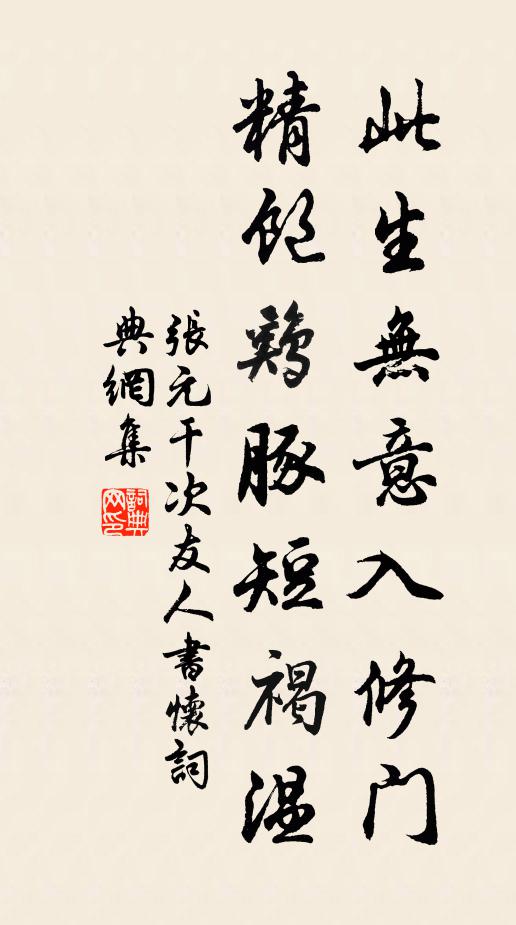 此生無意入修門
精飽鷄豚短褐温
張元干次友人書懷詞
典網集
詞典網印